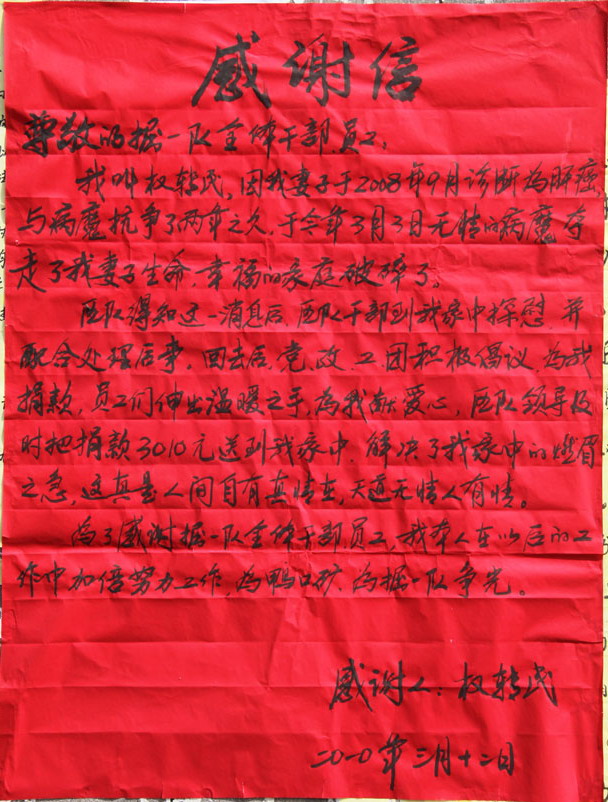 感谢信
尊敬的掘一队全体干部、员工:
我叫权转民,因我妻子于2008年9月诊断为肝癌,
与病魔抗争了两年之久,于今年3月3日无情的病魔夺
走了我妻子生命,幸福的家庭破碎了。
区队得知这一消息后,区队干部到我家中探慰,并
配合处理后事,回去后,党、政、工团积极倡议,为我
捐款,员工们伸出温暖之手,为我献爱心,区队领导及
时把捐款3010元送到我家中,解决了我家中的燃眉
之急,这真是人间自有真情在,天道无情人有情。
为了感谢掘一队全体干部员工,我本人在以后的工
作中加倍努力工作,为鸭口矿、为掘一队争光。
感谢人:权转民
二〇一〇年三月十二日